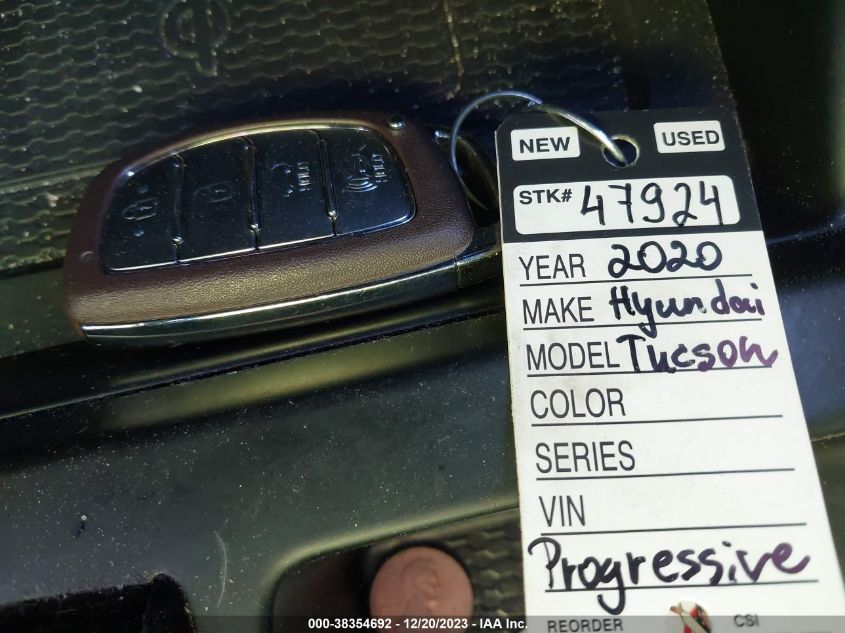 NEW USED
STK# 47924
YEAR 2020
MAKE Hyundai
MODEL Tucson
COLOR
SERIES
VIN
Progressive
REORDER CSI
000-38354692 - 12/20/2023 - IAA Inc.